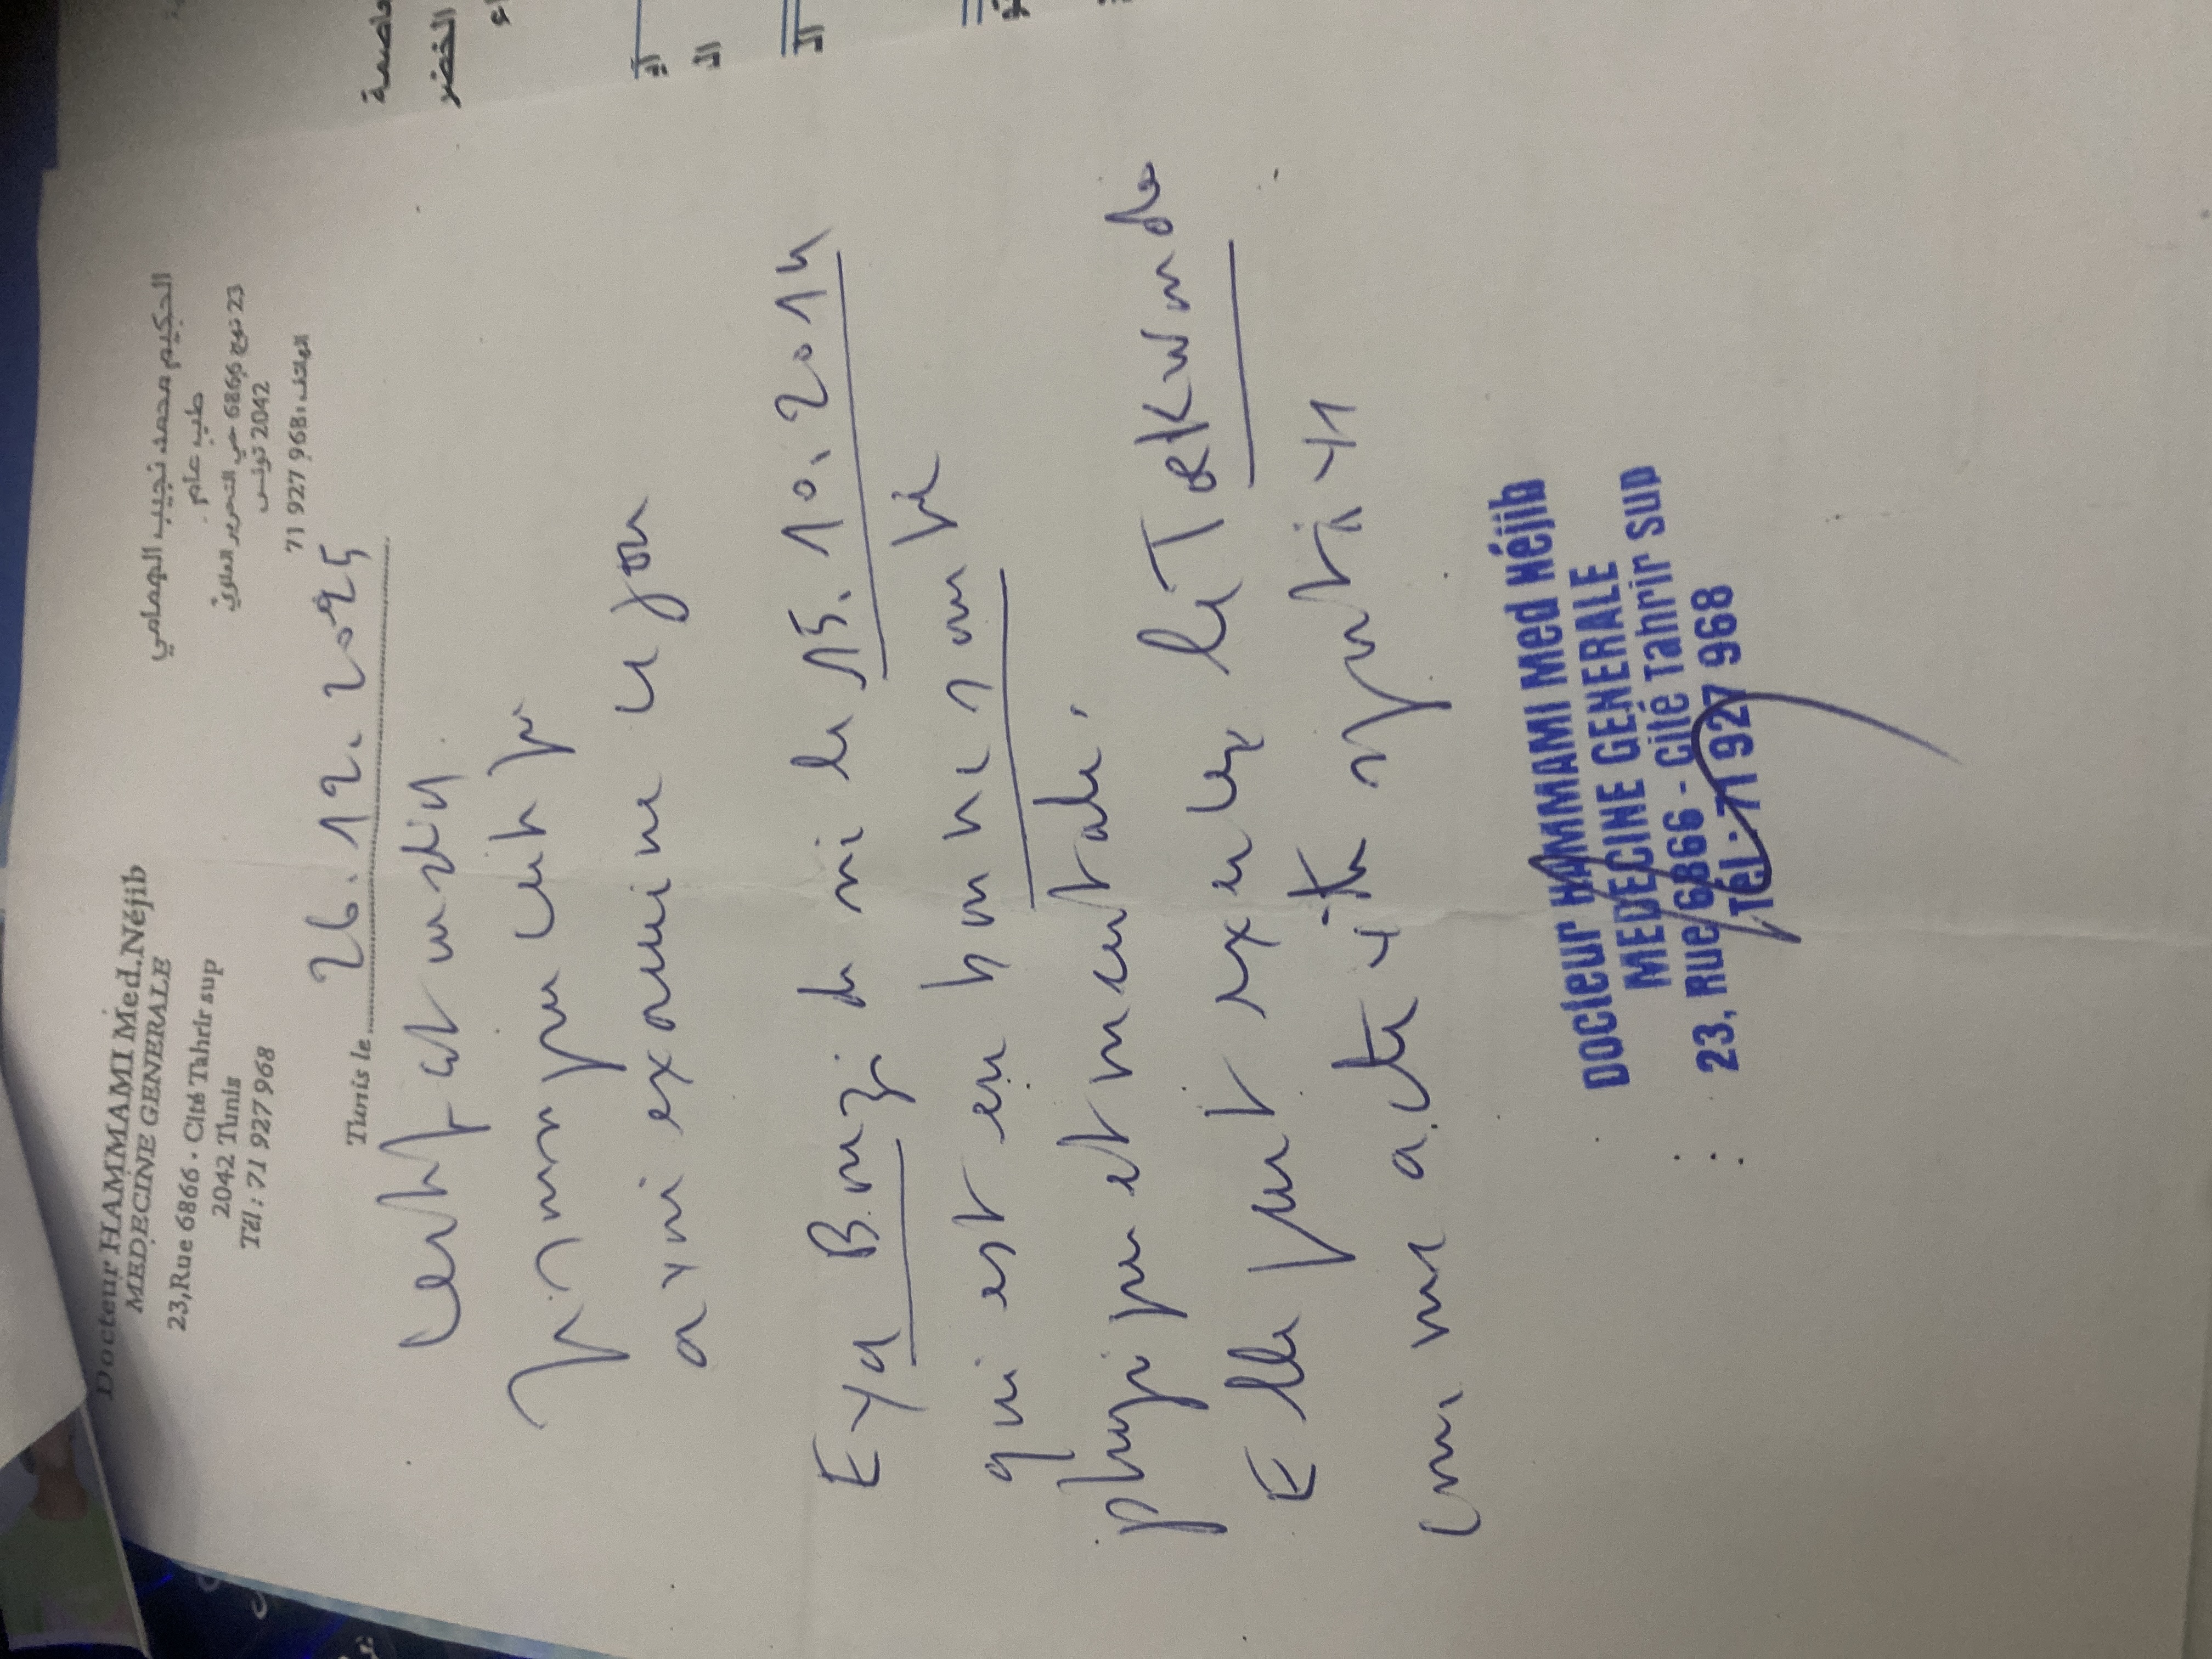 Docteur HAMMAMI Med.Néjib
MEDECINE GENERALE
23,Rue 6866 - Cité Tahrir sup
2042 Tunis
Tél : 71 927 968
الحكيم محمد نجيب الهمامي
طب عام
23 نهج 6866 حي التحرير العلوي
2042 تونس
الهاتف : 71 927 968
Tunis le 26.12.2025
Certificat médical
avoir examiné ce jour
Eya née le 15.10.2014
qui est en bonne santé
physique et mentale.
Elle peut exercer le Taekwondo
comme activité sportive
Docteur HAMMAMI Med Néjib
MEDECINE GENERALE
23, Rue 6866 - Cité Tahrir sup
Tél : 71 927 968